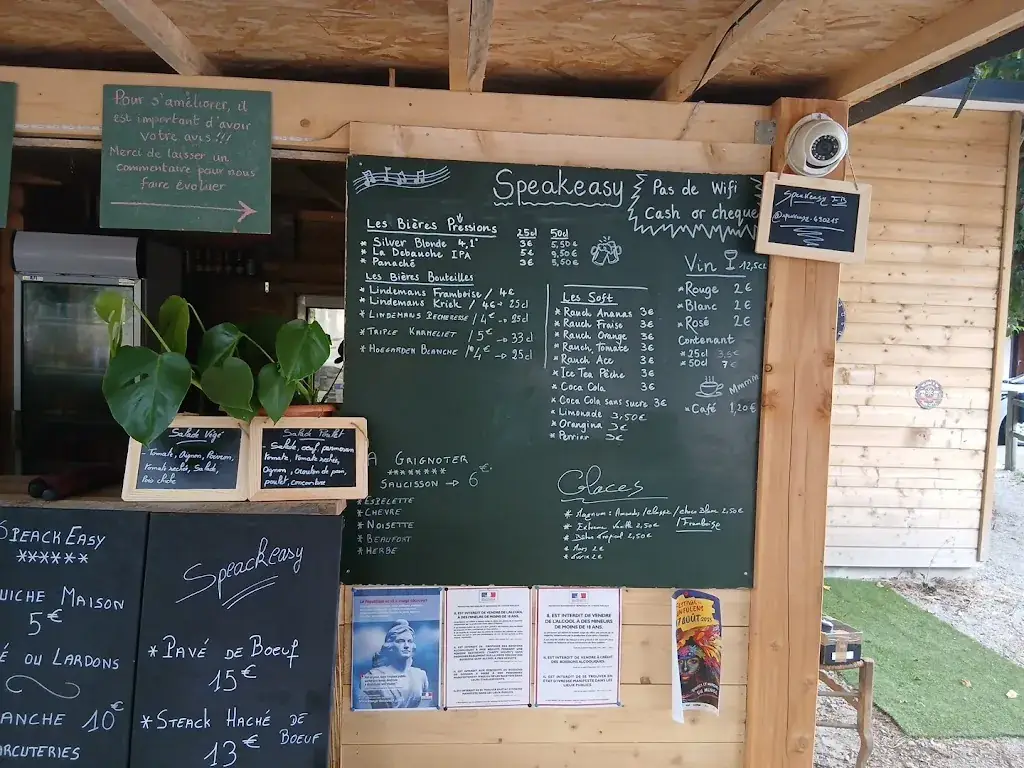 Pour s'améliorer, il
est important d'avoir
votre avis!!!
Merci de laisser un
commentaire pour nous
faire évoluer
Speakeasy
Pas de Wifi
Cash or cheque
Speakeasy
Les Bières Pressions
25cl 50cl
* Silver Blonde 4,1° 3€ 5,50€
* La Debauche IPA 5€ 9,50€
* Panaché 3€ 5,50€
Les Bières Bouteilles
* Lindemans Framboise / 4€
* Lindemans Kriek / 4€ → 25cl
* Lindemans Pecheresse / 4€ → 25cl
* Triple Karmeliet / 5€ → 33cl
* Hoegarden Blanche / 4€ → 25cl
Les Soft
* Rauch Ananas 3€
* Rauch Fraise 3€
* Rauch Orange 3€
* Rauch Tomate 3€
* Rauch Ace 3€
* Ice Tea Pêche 3€
* Coca Cola 3€
* Coca Cola sans sucre 3€
* Limonade 3,50€
* Orangina 3€
* Perrier 3€
Vin 12,5cl
* Rouge 2€
* Blanc 2€
* Rosé 2€
Contenant
* 25cl
* 50cl 7€
Mmmm
* Café 1,20€
Salade Végé
Tomate, Oignon, Poivron,
Tomate sechée, Salade,
Pois chiche
Salade Poulet
Salade, oeuf, parmesan
Tomate, Tomate sechée,
Oignon, Crouton de pain,
poulet, concombre
A Grignoter
*******
Saucisson → 6€
* Espelette
* Chevre
* Noisette
* Beaufort
* Herbe
Glaces
* Magnum: Amande / classic / choco Blanc 2,50€
/Framboise
* Extreme Vanille 2,50€
* Tropical 2,50€
* Mars 2€
2€
Speackeasy
******
uiche Maison
5€
é ou Lardons
anche 10€
arcuteries
Speackeasy
* Pavé de Boeuf
15€
* Steack Haché de Boeuf
13€
IL EST INTERDIT DE VENDRE DE L'ALCOOL
À DES MINEURS DE MOINS DE 18 ANS.
IL EST INTERDIT DE VENDRE
DE L'ALCOOL À DES MINEURS
DE MOINS DE 18 ANS.
IL EST INTERDIT DE VENDRE À CRÉDIT
DES BOISSONS ALCOOLIQUES.
IL EST INTERDIT DE SE TROUVER EN
ÉTAT D'IVRESSE MANIFESTE DANS LES
LIEUX PUBLICS.
FESTIVAL
AOÛT 2025